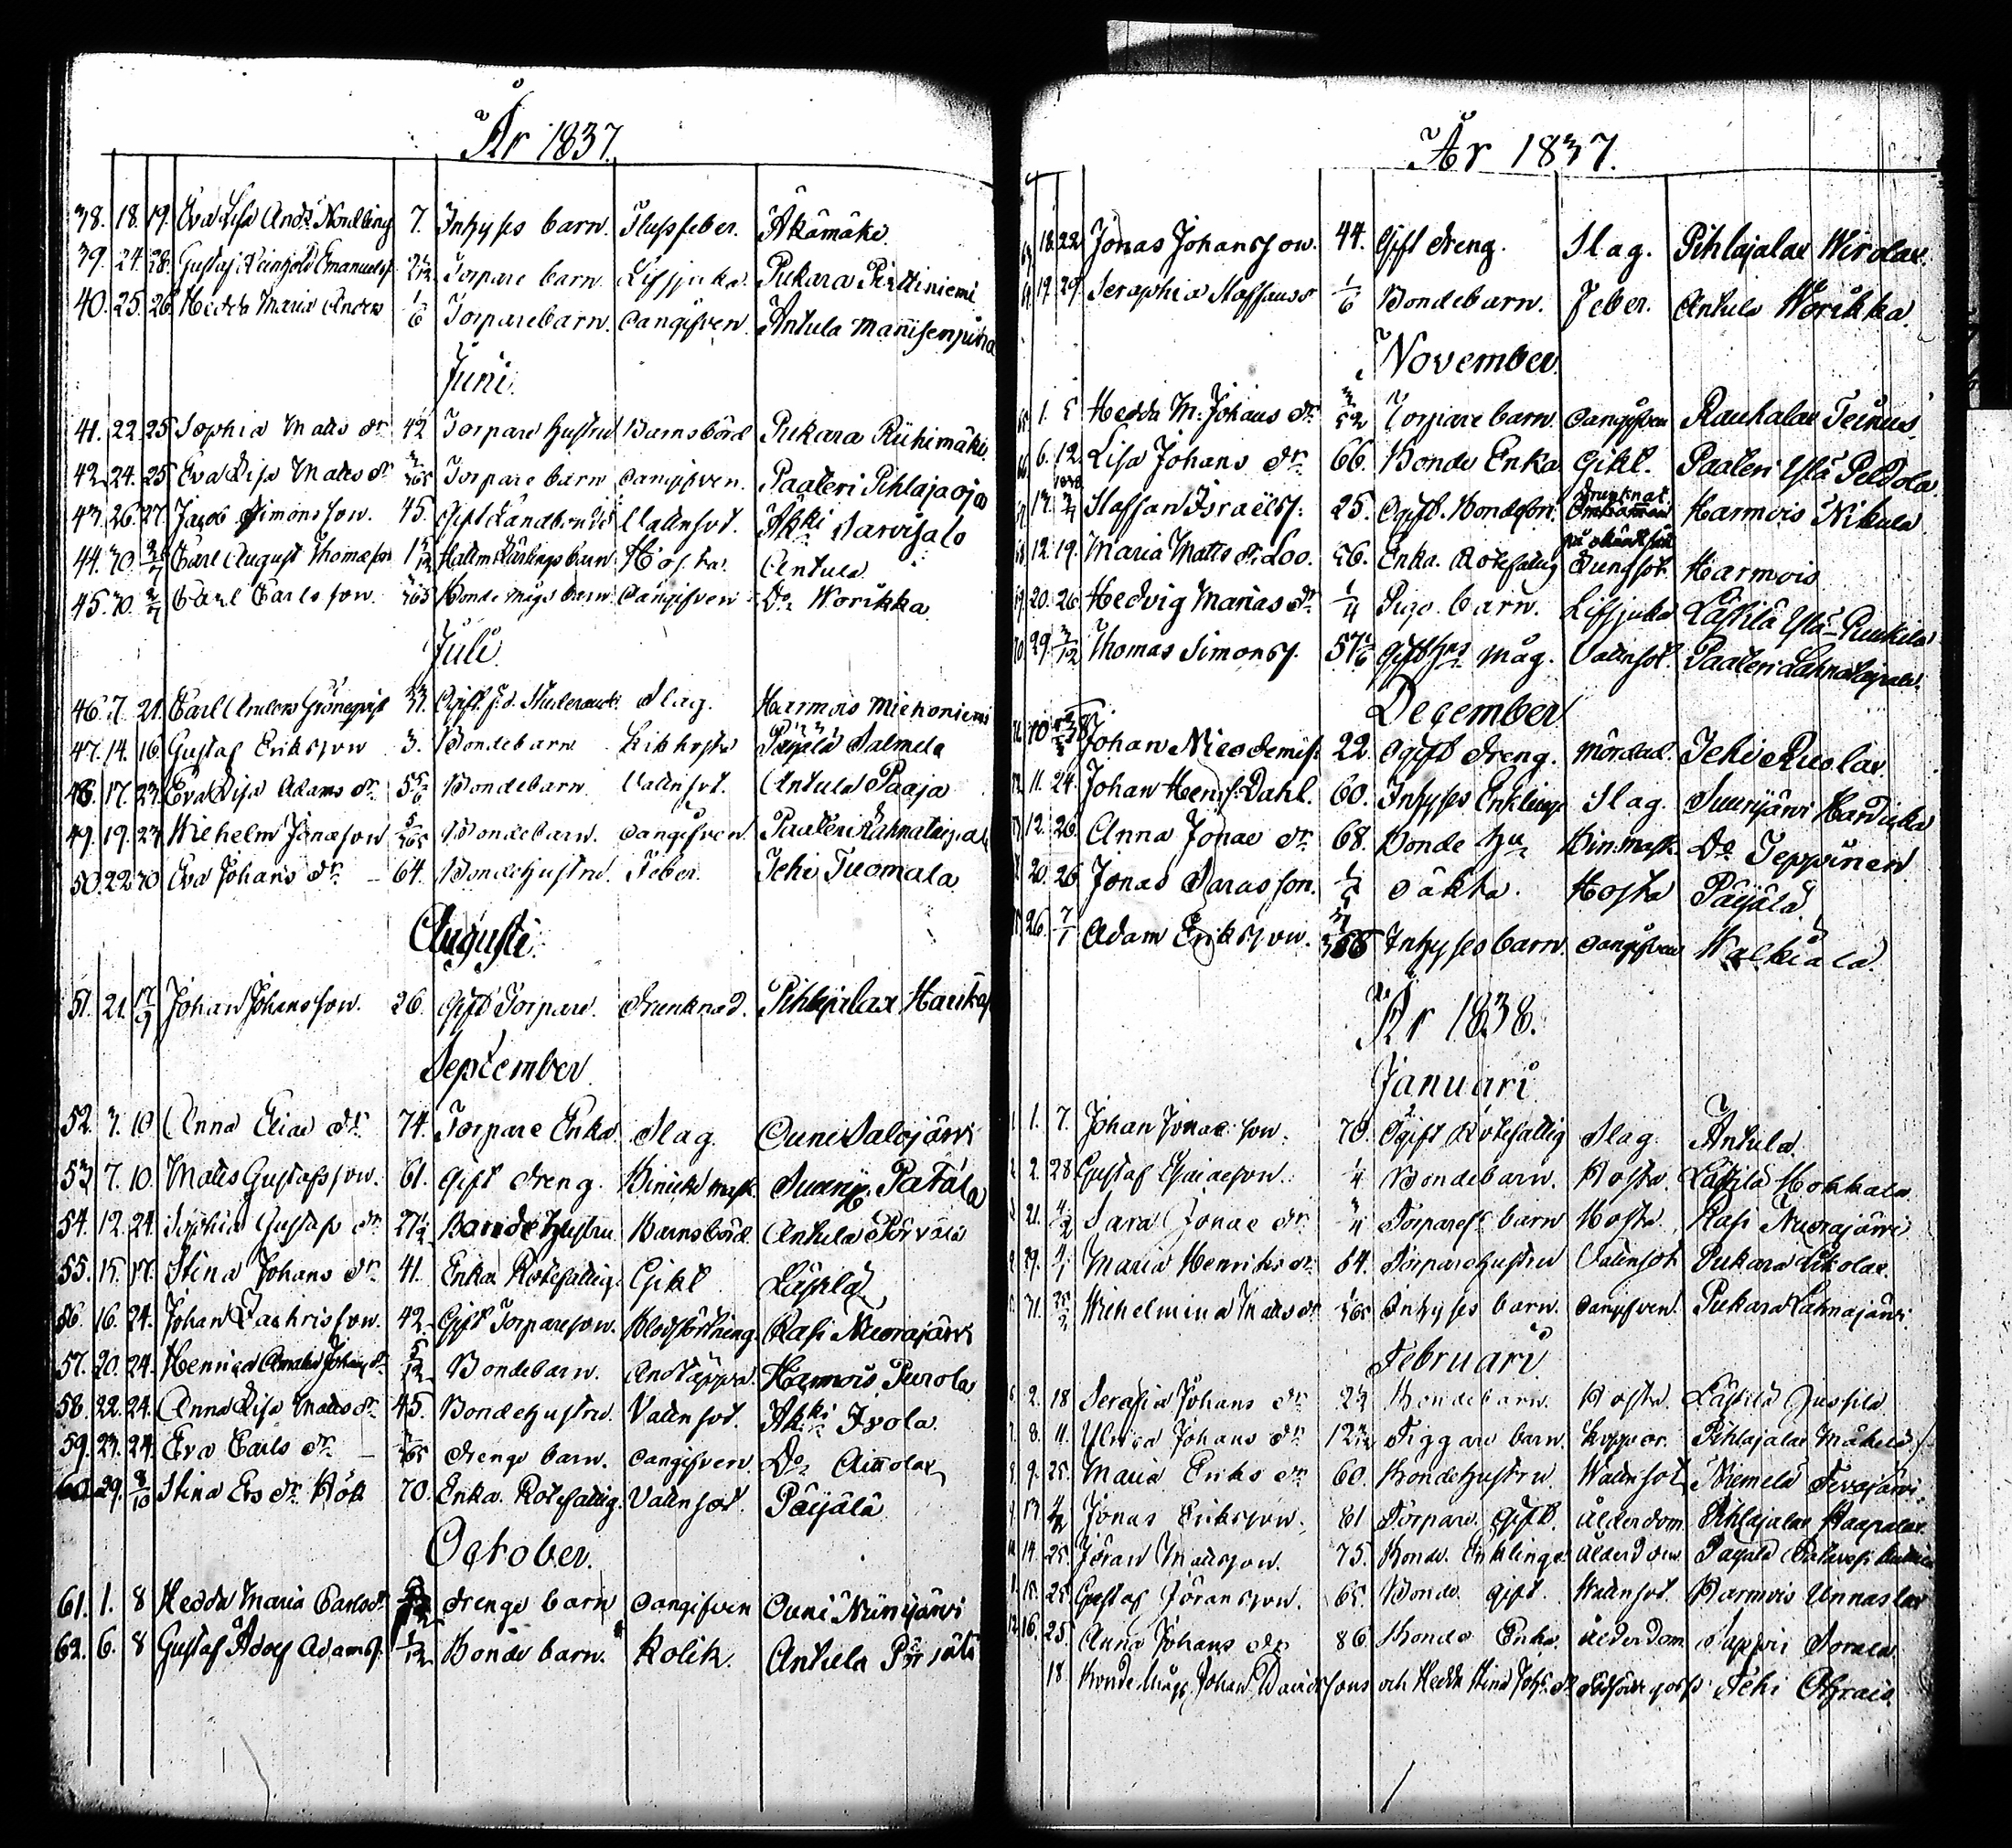 År 1837.
38. 18. 19. Eva Lisa And: Nordling 7. Inhyses barn. Flussfeber. Akämäki
39. 24. 28. Gustaf Reinhold Emanuels Torpare barn Lifsjuka Pukara Pirttiniemi
40. 25. 26. Hedda Maria Anders 1/6 Torparebarn. oangifven. Antula
Juni.
41. 22. 25 Sophia Matts dr 42 Torpare hustru Barnsbörd Pukara Riihimäki
42. 24. 25 Eva Lisa Matts dr Torpare barn oangifven. Paateri Pihlajaoja
43. 26. 27. Jacob Simonsson. 45. Gift Landbonde Vattusot. Akki Sarvisalo
44. 30. 2/7 Carl August Thomasson Hosta. Antula
45. 30. 2/7 Carl Carlsson. Bonde mågs barn oangifven Do Worikka
Juli.
46. 7. 21. Carl Anders Grönqvist Slag. Harmois Miehoniemi
47. 14. 16. Gustaf Eriksson 3. Bondebarn Kikhosta Päijälä Salmela
48. 17. 23. Eva Lisa Adams dr 5 5/6 Bondebarn Vattusot. Antula Paaja
49. 19. 23 Wilhelm Jonasson 5/365 Bondebarn. oangifven. Paateri
50. 22 30 Eva Johans dr 64. Bondehustru Feber. Jehi Tuomala
Augusti.
51. 21. 17/9 Johan Johansson. 26. Gift Torpare. drunknad. Pihlajalax
September
52. 3. 10 Anna Elias dr 74. Torpare Enka Slag. Ouni Salojärvi
53 7. 10. Matts Gustafsson. 61. Gift dreng. Binnike mask. Suurij. Patala
54. 12. 24. Sophia Gustafs dr 27 1/2 Bonde hustru Barnsbörd. Antula Porvala
55. 15. 17. Stina Johans dr 41. Enka Rotefattig. Gikt
56. 16. 24. Johan Zachrisson. 42. Gift Torpareson. Blodstörtning. Rasi Nuorajärvi
57. 20. 24. Henrica Amalia Johans dr 5/12 Bondebarn. Andtäppa. Harmois Purola
58. 22. 24. Anna Lisa Matts dr 45. Bondehustru Vattusot. Akki Irola.
59. 23. 24. Eva Carls dr drengs barn. oangifven. Do
60. 29. 8/10 Stina Ers dr Hök 70. Enka. Rotefattig. Vattusot. Päijälä
October.
61. 1. 8 Hedda Maria Carls dr drengs barn oangifven Ouni Niinijärvi
62. 6. 8 Gustaf Adolf Adams. 1/12 Bonde barn. Kolik. Antula
År 1837.
18. 22 Jonas Johansson. 44. Gift dreng. Slag. Pihlajalax Wirolax.
19. 29. Seraphia Staffans dr 1/6 Bondebarn. Feber. Antula Worikka.
November
1. 5 Hedda M: Johans dr 3/52 Torpare barn oangifven Rauhalax Teinus
6. 12. Lisa Johans dr 66. Bonde Enka Gikt. Paateri Ylä Peldola.
Staffan Israels 25. Ogift. Bondeson. drunknat Harmois Nikula
12. 19. Maria Matts dr Loo. 56. Enka. Rotefattig Lungsot. Harmois
20. 26 Hedvig Marias dr 1/4 Pigo barn. Lifsjuka Lästilä Ylä-Punkila
29. 3/12 Thomas Simons. 57 1/6 Gift måg. Vattusot. Paateri
December
10 Johan Nicodemis. 22. Ogift dreng. Mördad. Jehi Ruolax.
11. 24. Johan Henrs: Dahl. 60. Inhyses Enkling Slag. Suurijärvi
12. 26 Anna Jonae dr 68. Bonde hu Bin: mask. Do Teppinen
20. 26 Jonas Sarasson. oäkta. Hosta Päijälä.
26. 7/1 Adam Eriksson. Inhyses barn. oangifven Walkiala.
År 1838.
Januari
1. 1. 7. Johan Jonae son. 70. Ogift Rotefattig Slag. Antula.
2. 28 Gustaf Esaiaeson. 1/4 Bondebarn. Hosta. Lästilä Hokkala
21. 4/2 Sara Jonae dr 3/4 Torpares barn Hosta. Rasi Nuorajärvi
Maria Henriks dr 64. Torparehustru Vattusot. Pukara
31. Wilhelmina Matts dr Inhyses barn. oangifven. Pukara Lahnajärvi
Februari
2. 18 Serafia Johans dr Bondebarn. Hosta. Lästilä Jussila
8. 11. Ulrica Johans dr Tiggare barn. Koppor. Pihlajalax Mäkelä
9. 25. Maria Eriks dr 60. Bondehustru Wattusot. Niemelä
Jonas Eriksson. 61 Torpare. Gift. Ålderdom Pihlajalax Haapalax
14. 25. Jöran Mattsson. 75. Bonde Enkling. Ålderdom Päijälä
15. 25 Gustaf Jöransson. 65. Bonde. Gift. Wattusot. Harmois Unnaslax
12. 16. 25. Anna Johans dr 86. Bonde Enka. Ålderdom. Sappi Sorala
18. Bonde Mågs Johan Davidssons och Hedda Stina Johs: dr dödfödde goss: Jehi